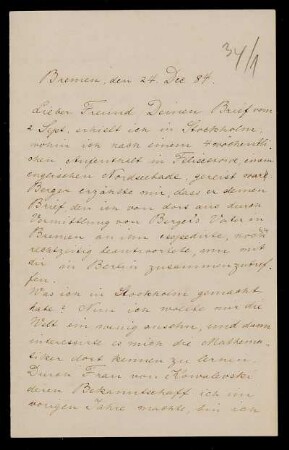 34/1
Bremen, den 24. Dec 84.
Lieber Freund Deinen Brief vom
2 Sept. erhielt ich in Stockholm,
wohin ich nach einem 4 wöchentli-
chen Aufenthalt in Felixstowe, einem
englischen Nordseebade, gereist war.
Berger erzählte mir, dass er deinen
Brief den ich von dort aus durch
Vermittlung von Berger's Vater in
Bremen an ihn expedirte, noch
rechtzeitig beantwortete, um mit
dir in Berlin zusammenzutref-
fen.
Was ich in Stockholm gemacht
habe? Nun ich wollte mir die
Welt ein wenig ansehn, und dann
interessirte es mich die Mathema-
tiker dort kennen zu lernen
Durch Frau von Kowalevski
deren Bekanntschaft ich im
vorigen Jahre machte, bin ich